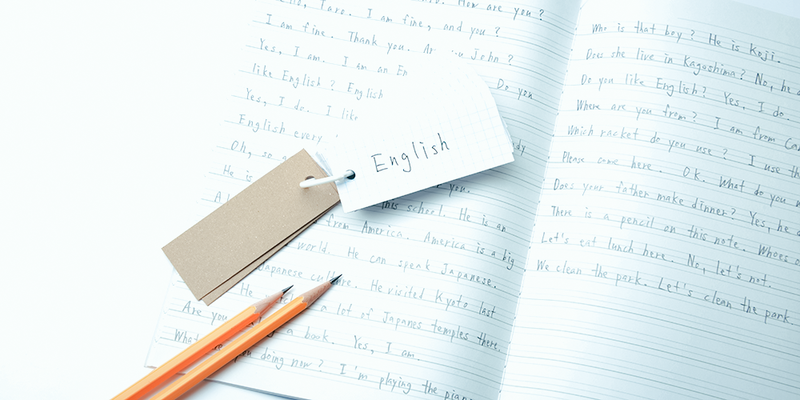 Taro. I am fine, and you? How are you?
I am fine. Thank you. John?
Yes, I am. I am an En
like English? English Do you
Yes, I do. I like
English every
Oh, so
He is
English
you.
this school. He is an
from America. America is a big
world. He can speak Japanese.
Japanese culture. He visited Kyoto last
He a lot of Japanes temples there.
Are you a book. Yes, I am.
What doing now? I'm playing the piano
Who is that boy? He is Koji.
Does she live in Kagoshima? No, he
Do you like English? Yes, I do.
Where are you from? I am from Can
Which racket do you use? I use th
Please come here. OK. What do you
Does your father make dinner? Yes, he
There is a pencil on this note. Whoes
Let's eat lunch here. No, let's not.
We clean the park. Let's clean the park.